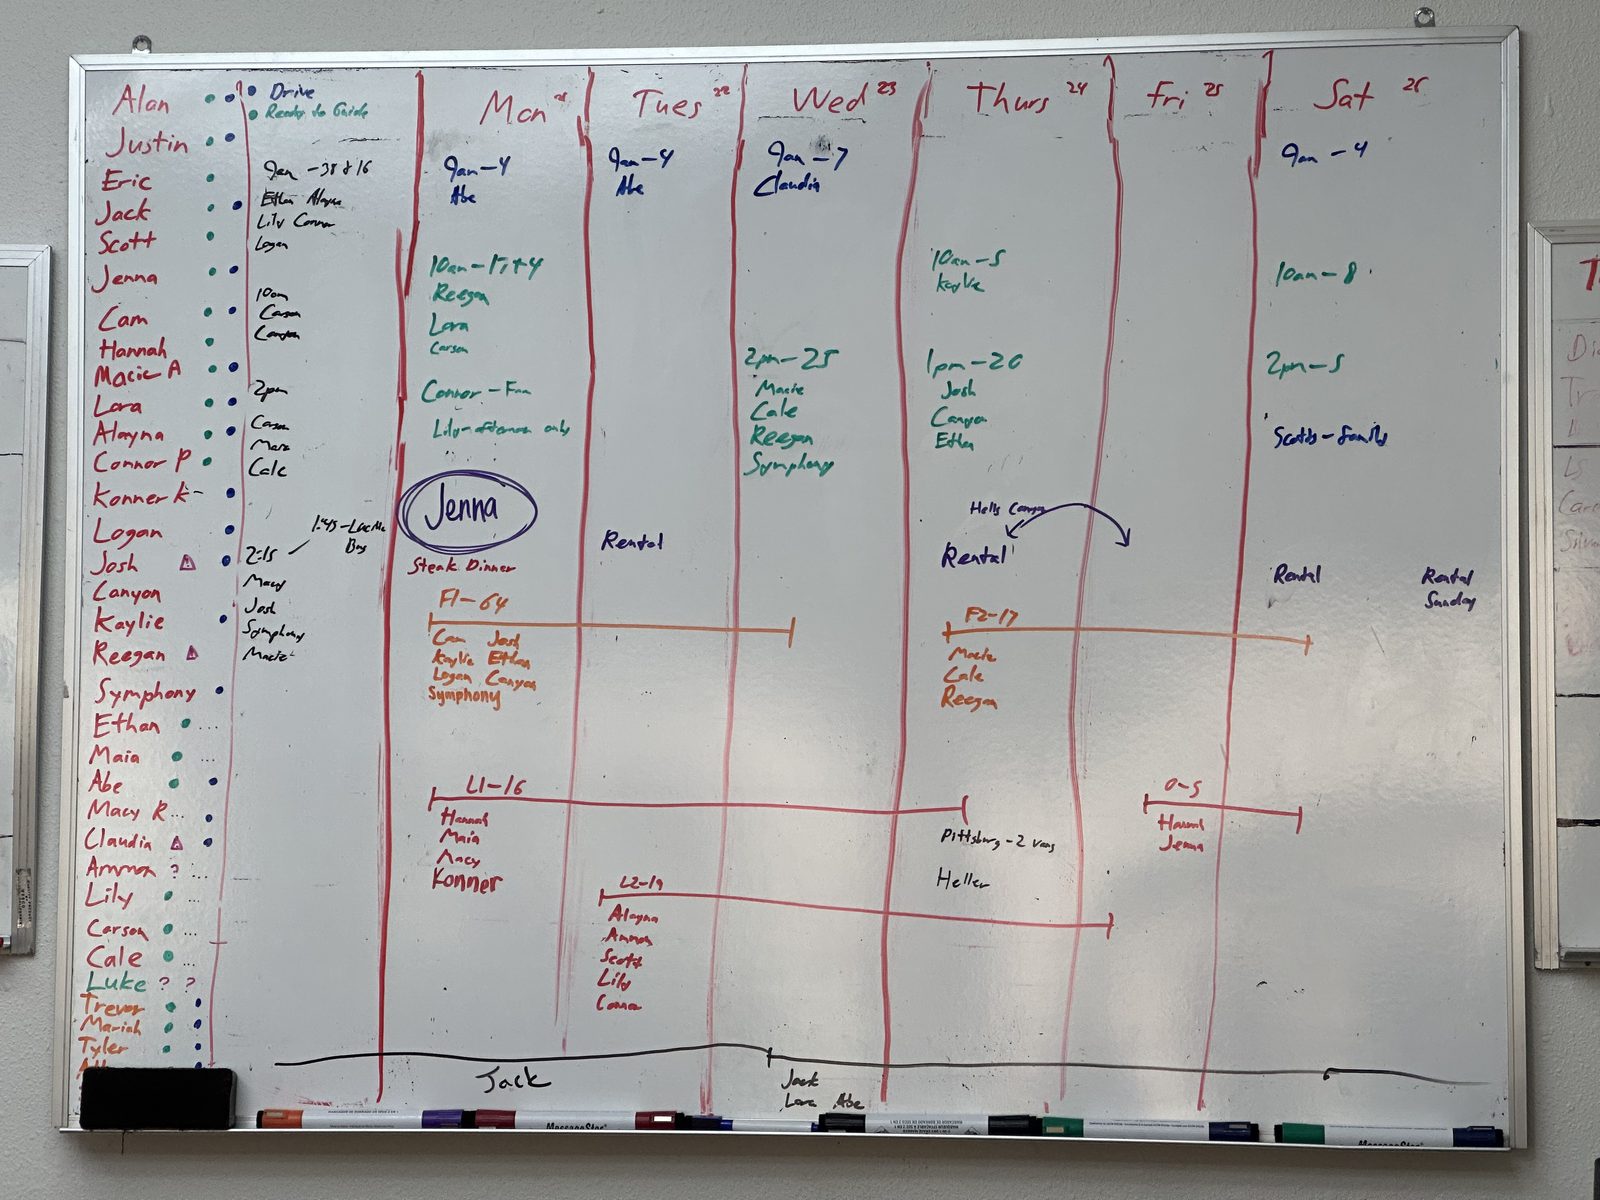 Alan
Justin
Eric
Jack
Scott
Jenna
Cam
Hannah
Macie A
Lora
Alayna
Connor P
Konner K-
Logan
Josh
Canyon
Kaylie
Reegan
Symphony
Ethan ...
Maia ...
Abe
Macy R...
Claudia
Ammon ? ...
Lily ...
Carson ...
Cale ...
Luke ? ?
Trevor
Mariah
Tyler
Drive
Ready to Guide
9am - 38+16
Ethan Alayna
Lily Connor
Logan
10am
Carson
Canyon
2pm
Carson
Cale
1:45-
Bus
2:15
Macy
Josh
Symphony
Macie
Mon 21
9am-4
Abe
10am-17+4
Reegan
Lora
Carson
Connor-Fam
Lily-afternoon only
Jenna
Steak Dinner
F1-64
Cam Josh
Kaylie Ethan
Logan Canyon
Symphony
L1-16
Hannah
Maia
Macy
Konner
Tues 22
9am-4
Abe
Rental
L2-19
Alayna
Ammon
Scott
Lily
Connor
Wed 23
9am-7
Claudia
2pm-25
Macie
Cale
Reegan
Symphony
Thurs 24
10am-5
Kaylie
1pm-20
Josh
Canyon
Ethan
Hells Canyon
Rental
F2-17
Macie
Cale
Reegan
Pittsburg-2 vans
Heller
Fri 25
0-5
Hannah
Jenna
Sat 26
9am-4
10am-8
2pm-5
Scotts-family
Rental
Rental
Sunday
Jack
Jack
Lora Abe